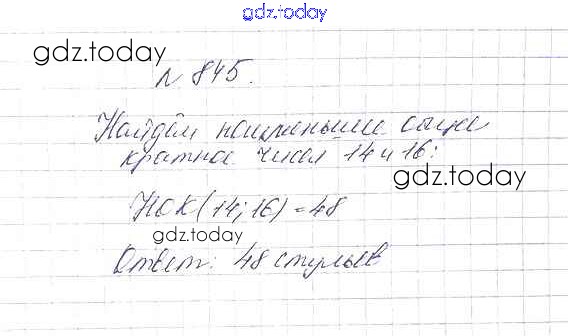 gdz.today
gdz.today
№ 845.
Найдём наименьшее общее
кратное чисел 14 и 16:
gdz.today
НОК(14; 16) = 48
gdz.today
Ответ: 48 стульев